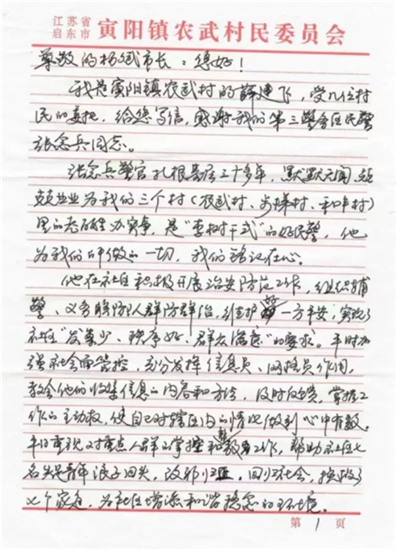 江苏省
启东市 寅阳镇农武村民委员会
尊敬的杨斌市长：您好！
我是寅阳镇农武村的薛建飞，受几位村
民的委托，给您写信，感谢我们第三警务区民警
张念兵同志。
张念兵警官扎根基层三十多年，默默无闻，兢
兢业业为我们三个村（农武村、 村、 村）
里的老百姓办实事，是“ ”的好民警，他
为我们所做的一切，我们铭记在心。
他在社区积极开展治安防范工作，组织辅
警、义务联防人群防群治，维护 一方平安，实现了
社区“发案少、秩序好、群众满意”的要求。平时加
强社会面管控，充分发挥信息员、网格员作用，
教会他们收集信息的内容和方法，及时反馈，掌握工
作的主动权，使自己对辖区内的情况做到心中有数。
平时重视对重点人群的掌控和教育工作，帮助社区七
名失足青年浪子回头，改邪归正，回归社会，挽救了
七个家庭，为社区增添和谐稳定的环境。
第 1 页